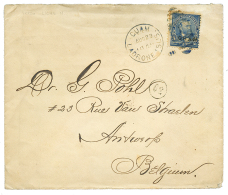 GUAM
Dr. G. Gohl
#23 Rue Van Straelen
Antwerp
Belgium.